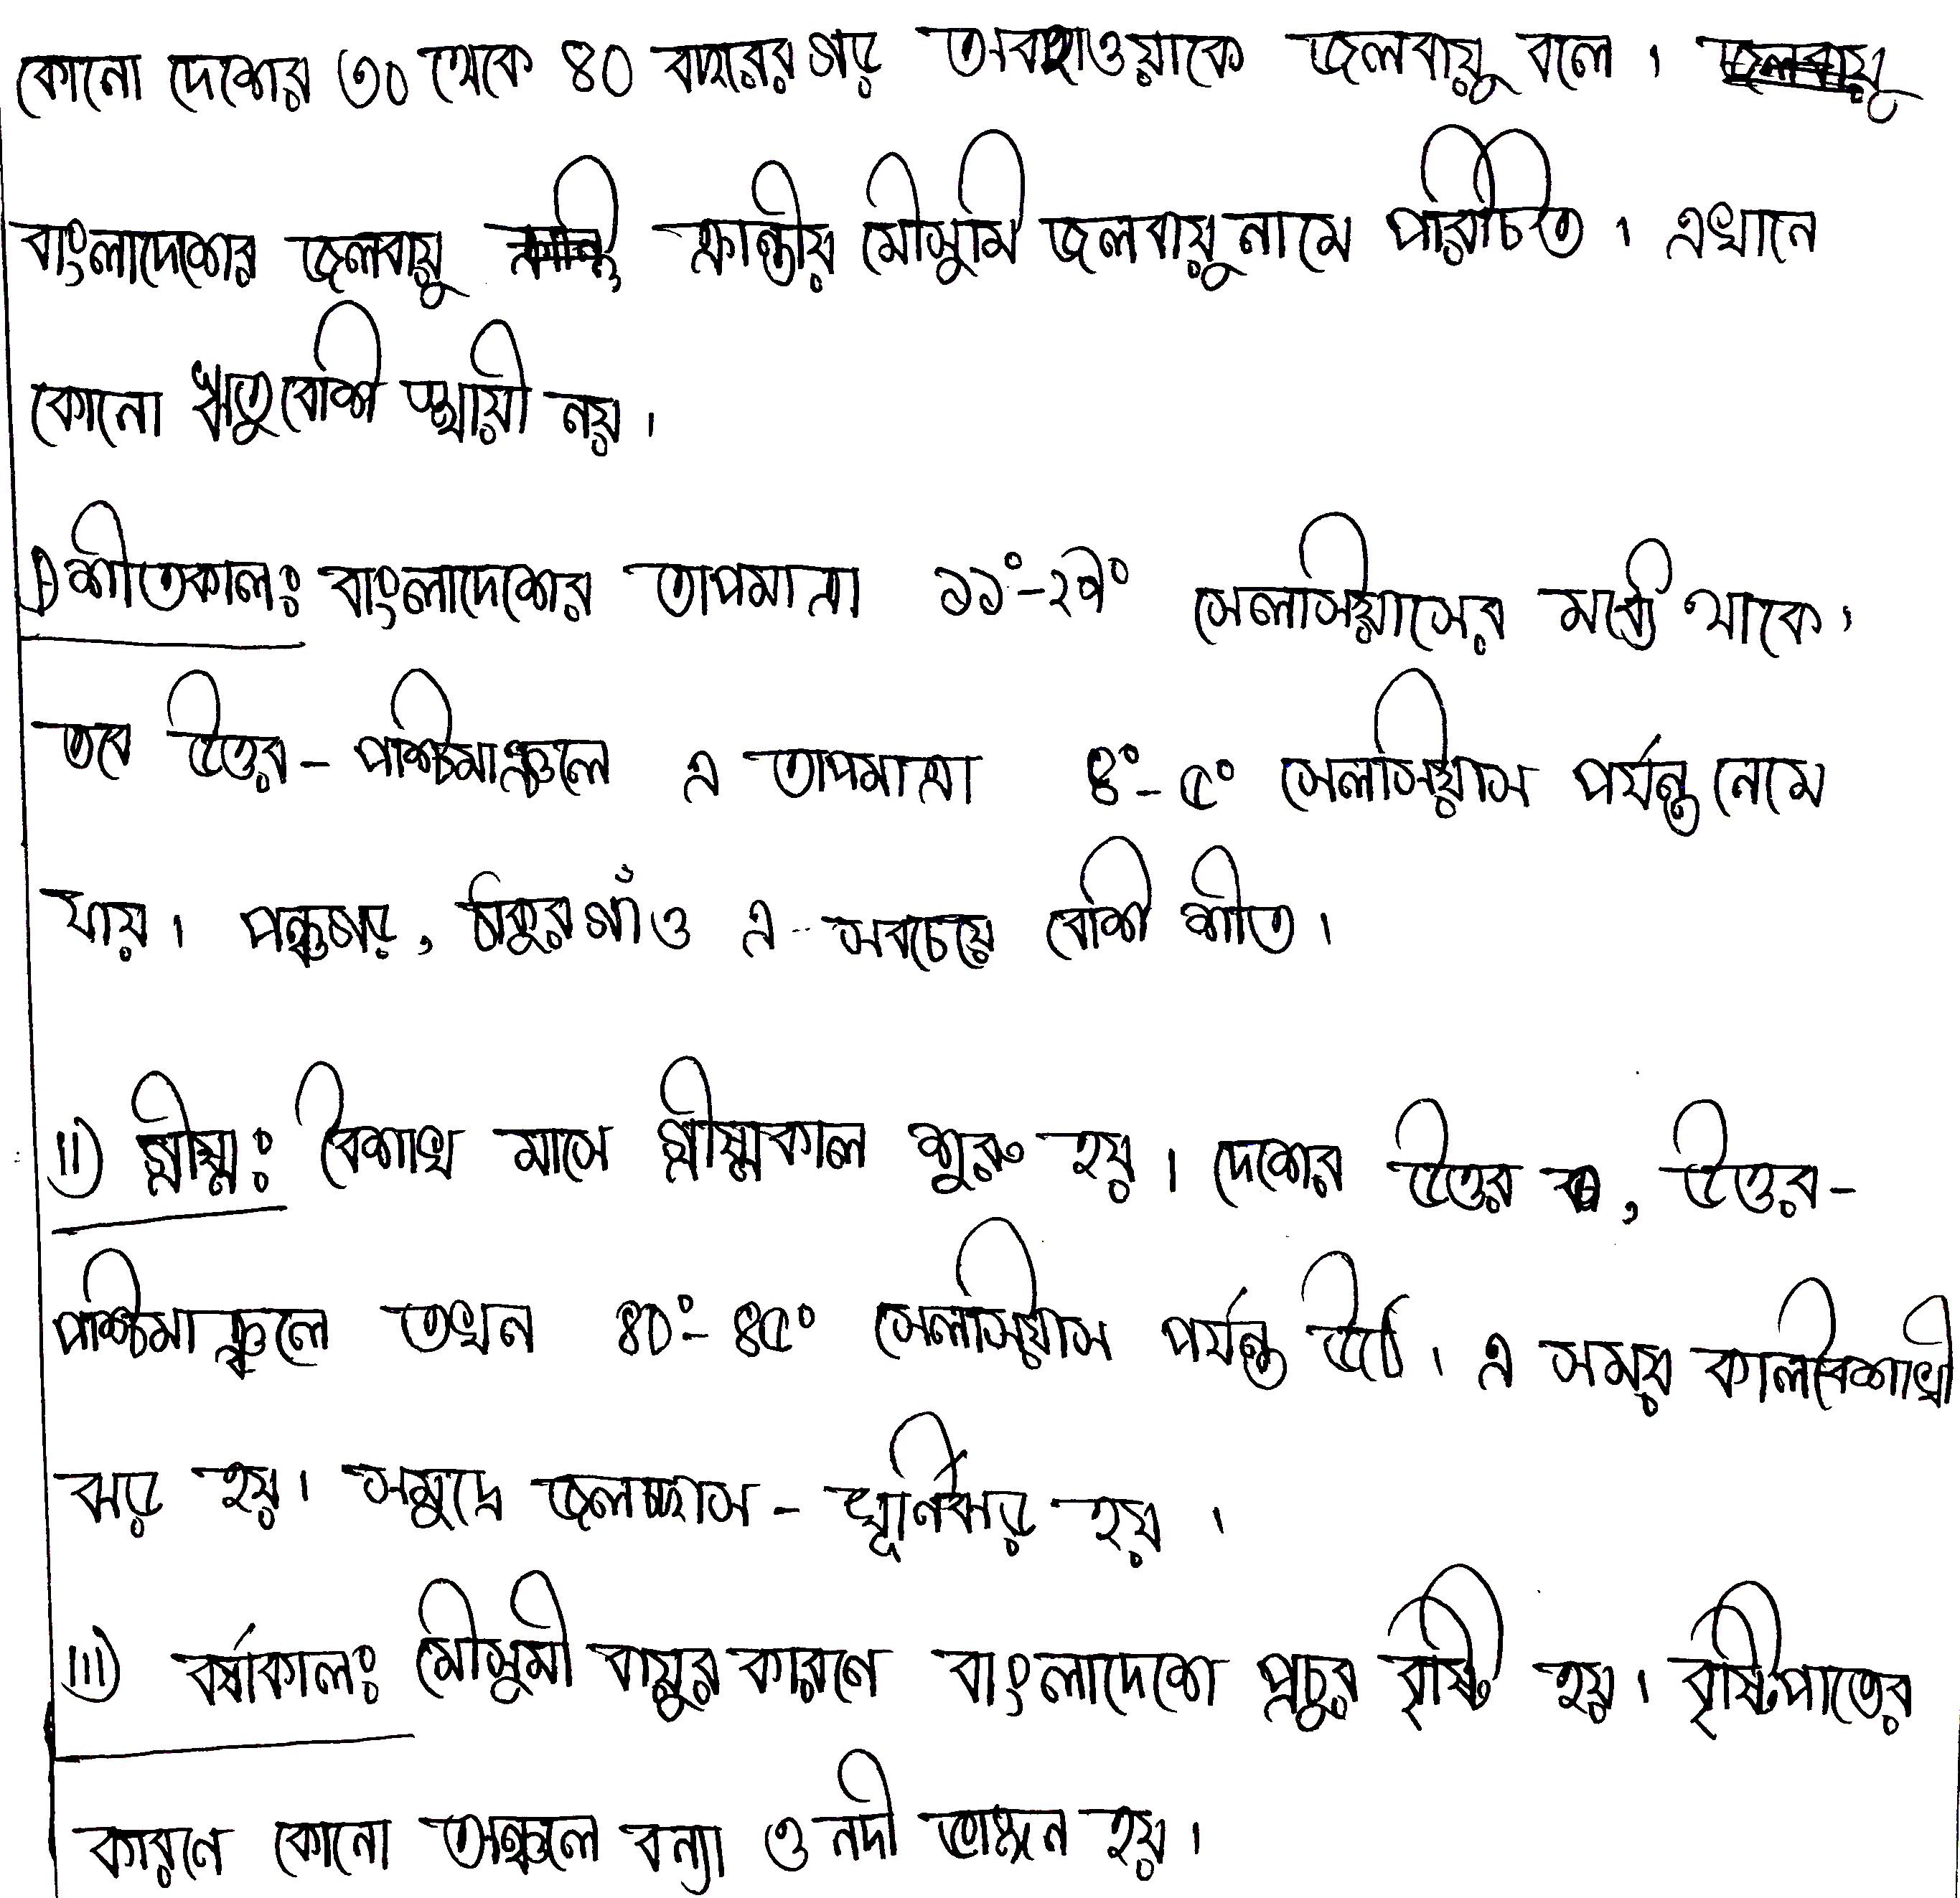 কোনো দেশের ৩০ থেকে ৪০ বছরের গড় আবহাওয়াকে জলবায়ু বলে। জলবায়ু
বাংলাদেশের জলবায়ু ক্রান্তীয় মৌসুমি জলবায়ু নামে পরিচিত। এখানে
কোনো ঋতু বেশি স্থায়ী নয়।
i) শীতকালঃ বাংলাদেশের তাপমাত্রা ১১°-২৭° সেলসিয়াসের মধ্যে থাকে।
তবে উত্তর-পশ্চিমাঞ্চলে এ তাপমাত্রা ৪°-৫° সেলসিয়াস পর্যন্ত নেমে
যায়। পঞ্চগড়, ঠাকুরগাঁও এ সবচেয়ে বেশি শীত।
ii) গ্রীষ্মঃ বৈশাখ মাসে গ্রীষ্মকাল শুরু হয়। দেশের উত্তর, উত্তর-
পশ্চিমাঞ্চলে তখন ৪০°-৪৫° সেলসিয়াস পর্যন্ত উঠে। এ সময় কালবৈশাখী
ঝড় হয়। সমুদ্রে জলোচ্ছাস-ঘূর্ণিঝড় হয়।
iii) বর্ষাকালঃ মৌসুমী বায়ুর কারণে বাংলাদেশে প্রচুর বৃষ্টি হয়। বৃষ্টিপাতের
কারণে কোনো অঞ্চলে বন্যা ও নদী ভাঙ্গন হয়।